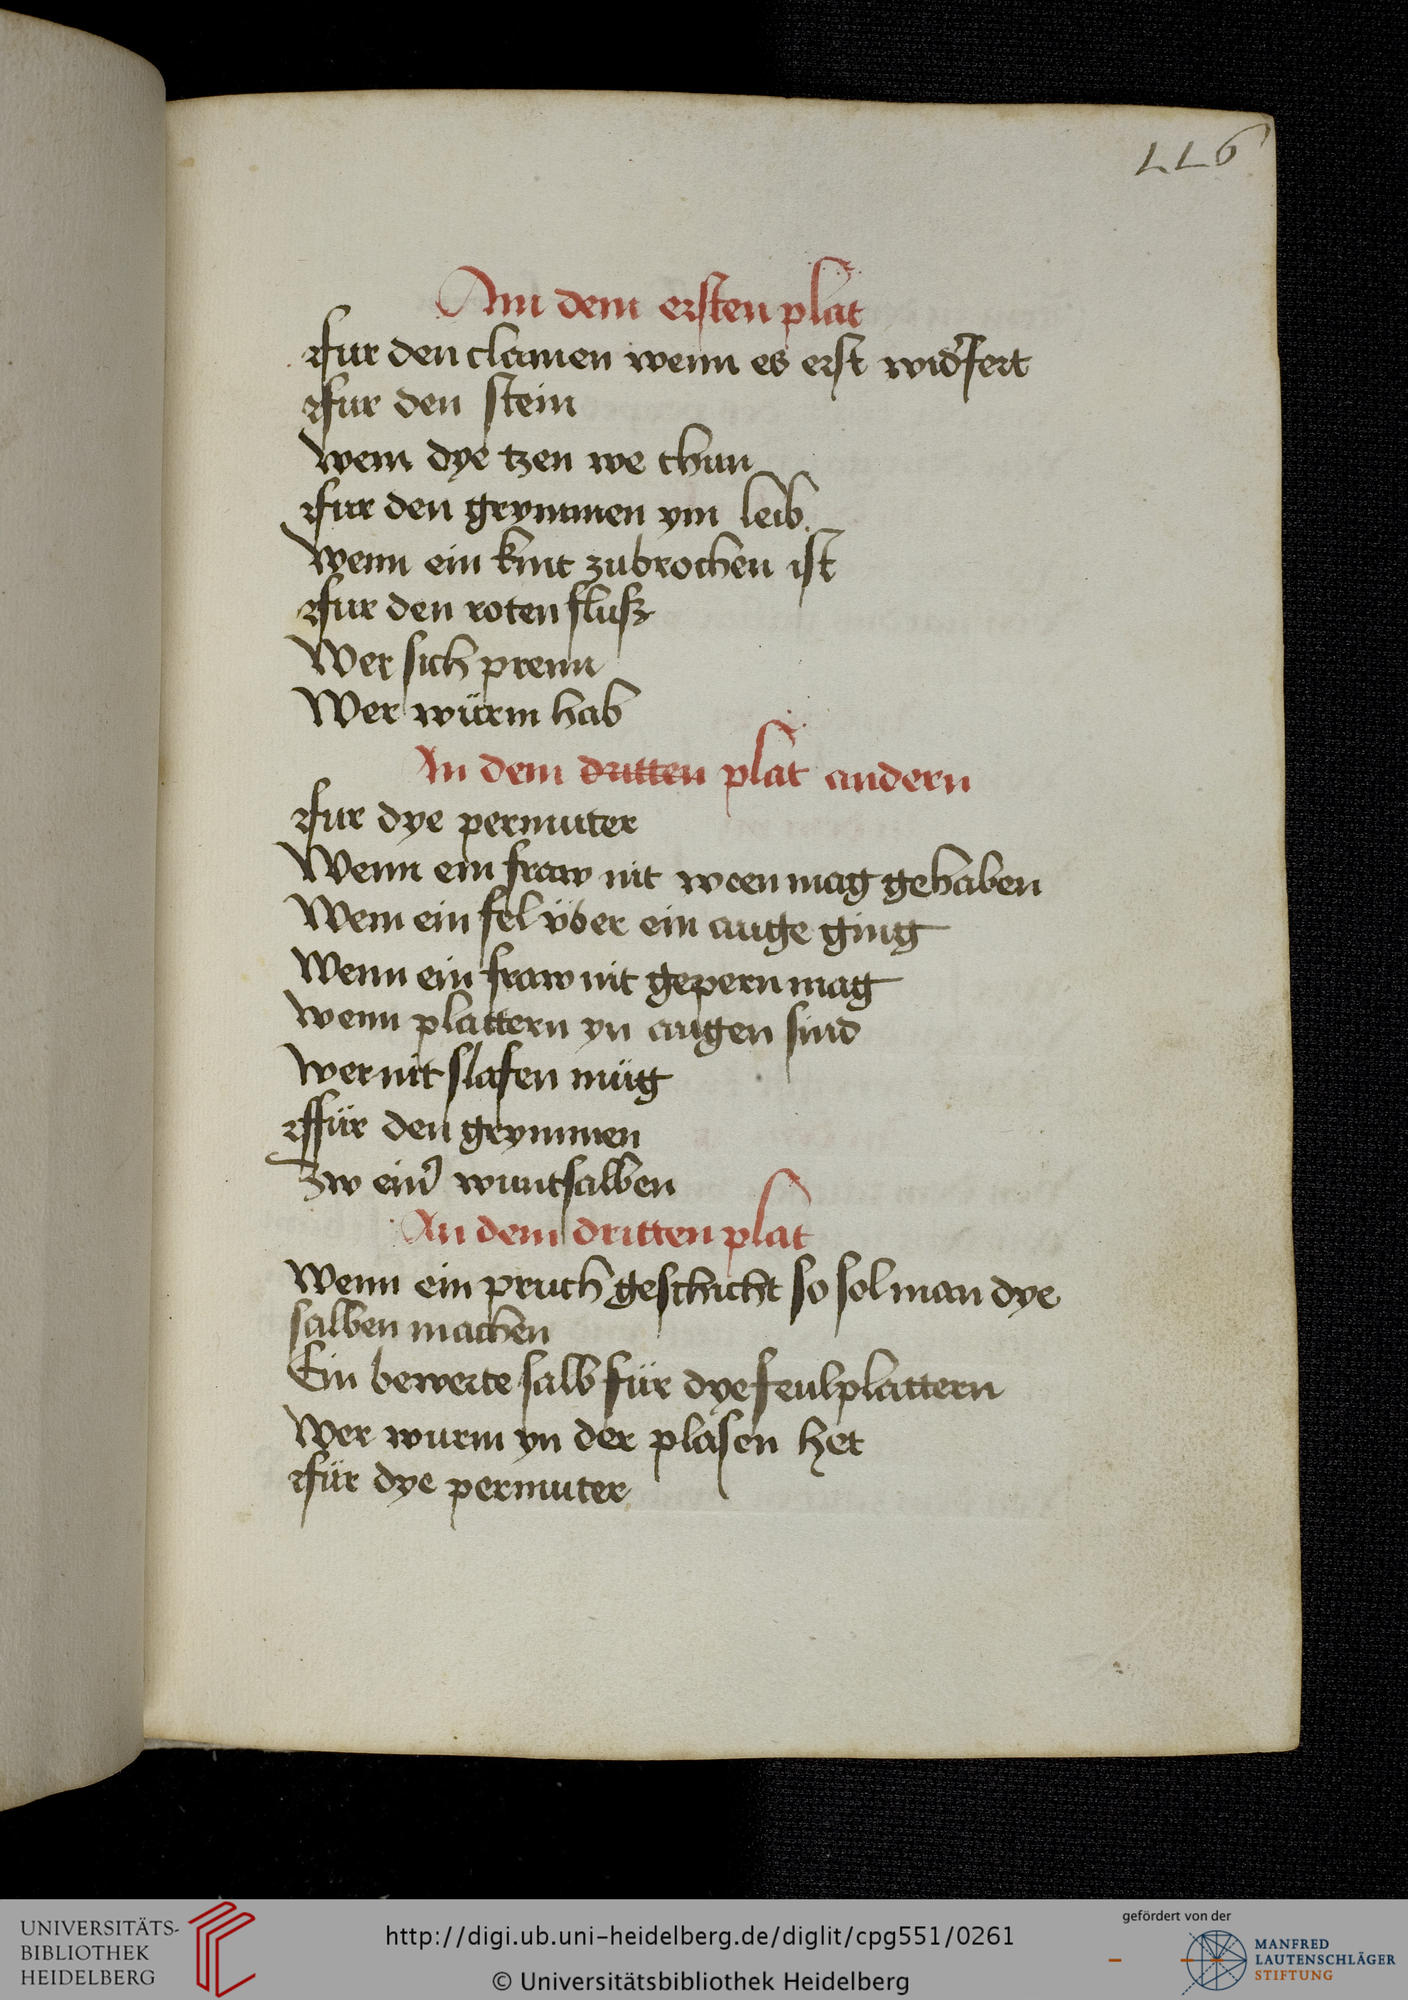 226
Am dem ersten plat
Fur den clamen wenn es erst widerfert
Fur den stein
wem dye tzen we thun
Fur den grymmen ym leib
Wenn ein kint zubrochen ist
Fur den roten flusz
Wer sich prenn
Wer würm hab
An dem dritten plat andern
Fur dye permuter
Wenn ein fraw nit ween mag gehaben
Wem ein fel vber ein auge ging
Wenn ein fraw nit gepern mag
wenn plattern yn augen sind
wer nit slafen müg
Für den grymmen
Zw einer wuntsalben
An dem dritten plat
Wenn ein pruch geschicht so sol man dye
salben machen
Ein bewerte salb für dye feulplattern
Wer wurm yn der plasen het
Für dye permuter
UNIVERSITÄTS-
BIBLIOTHEK
HEIDELBERG
http://digi.ub.uni-heidelberg.de/diglit/cpg551/0261
© Universitätsbibliothek Heidelberg
gefördert von der
MANFRED
LAUTENSCHLÄGER
STIFTUNG